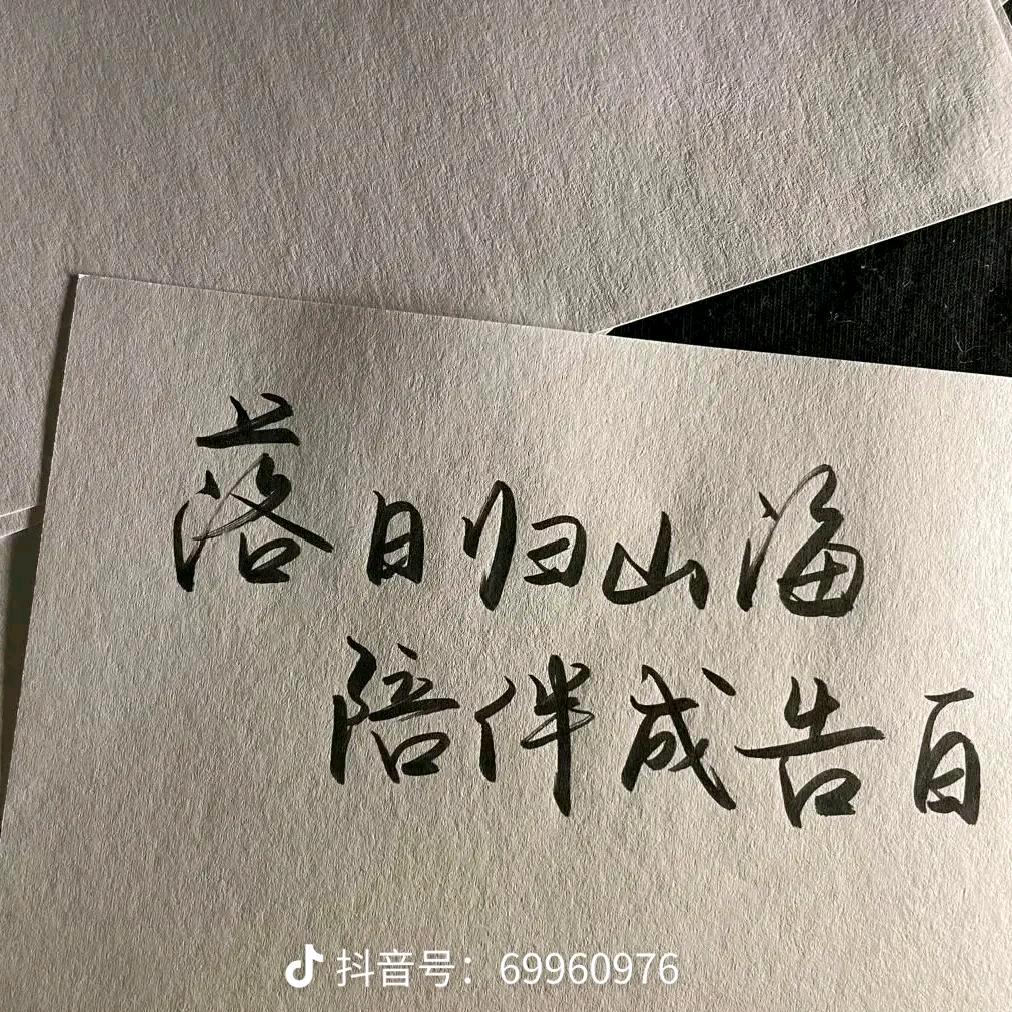 落日归山海
陪伴成告白
抖音号：69960976